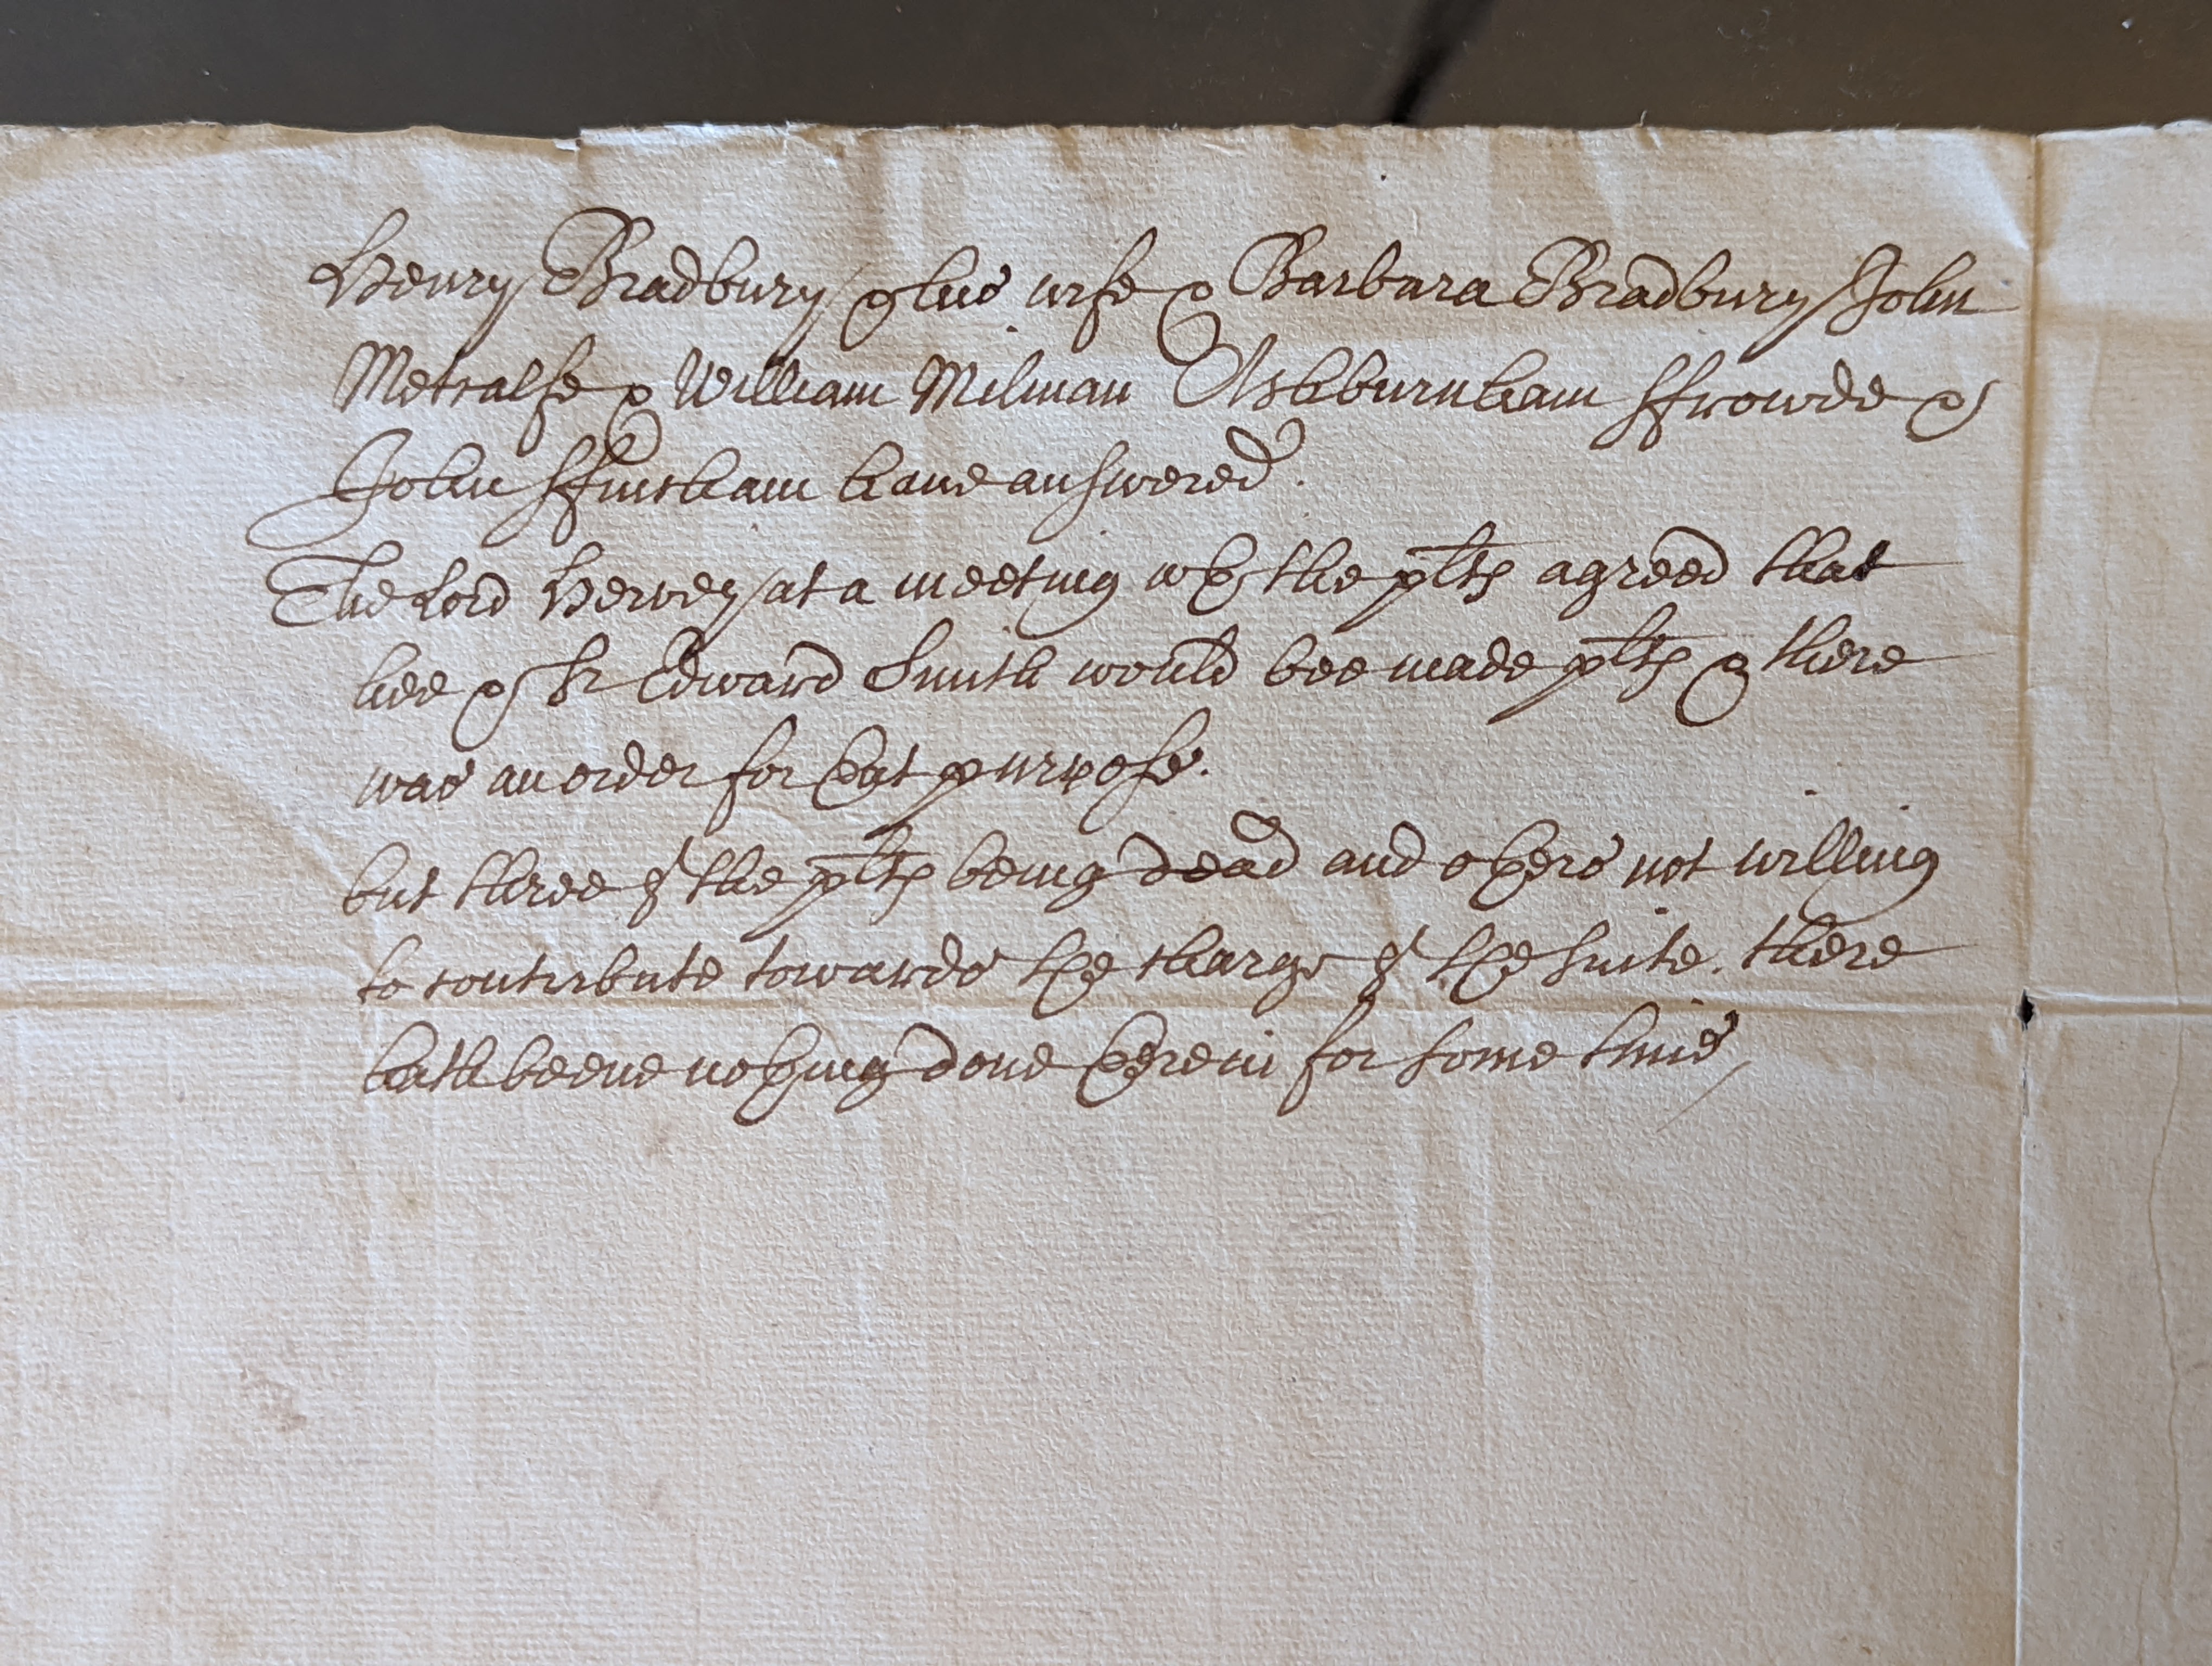 Henry Bradbury & his wife & Barbara Bradbury John
Metcalfe & William Milman Ashburnham ffrowde &
John ffincham have answered.
The Lord Hervey at a meeting wth the plts agreed that
hee & Sr Edward Smith would bee made plts & there
was an order for that purpose.
but three of the plts being dead and others not willing
to contribute towards the charge of the suite. there
hath beene nothing done therein for some time